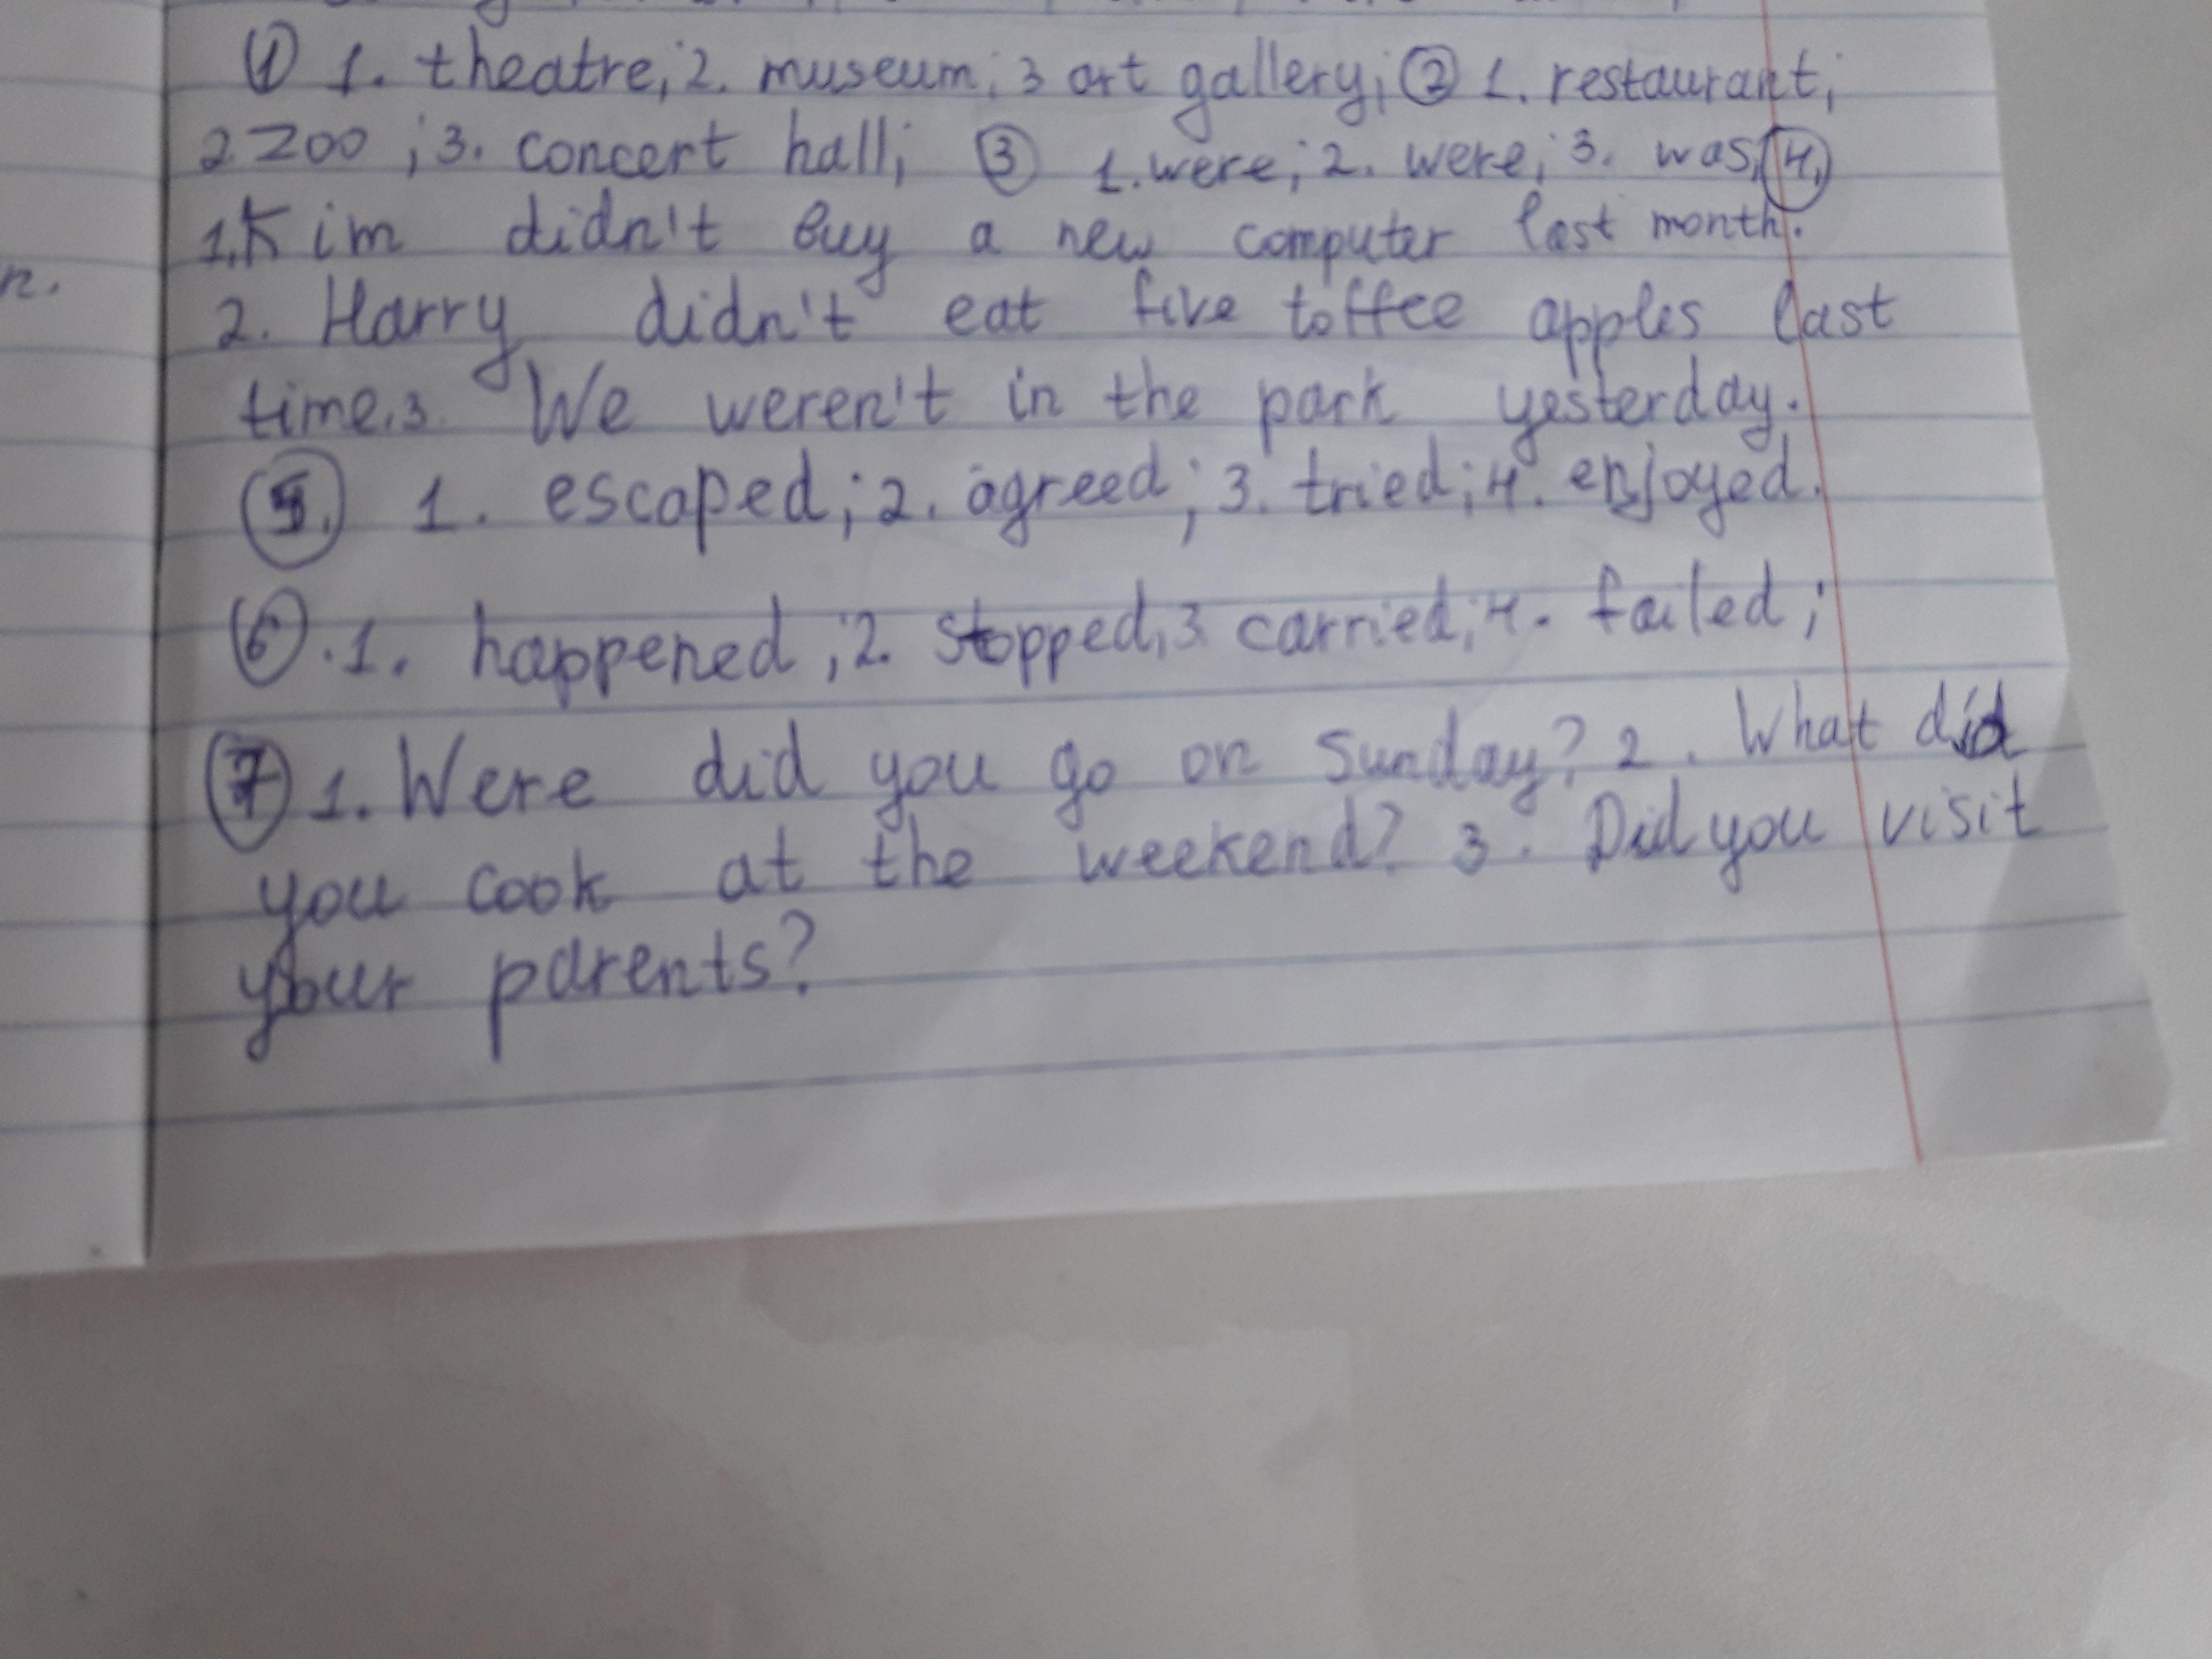 ① 1. theatre; 2. museum; 3 art gallery; ② 1. restaurant;
2. zoo; 3. concert hall; ③ 1. were; 2. were; 3. was; ④.
1. Kim didn't buy a new computer last month.
2. Harry didn't eat five toffee apples last
time. 3. We weren't in the park yesterday.
⑤. 1. escaped; 2. agreed; 3. tried; 4. enjoyed.
⑥. 1. happened; 2. stopped, 3. carried; 4. failed;
⑦ 1. Were did you go on Sunday? 2. What did
you cook at the weekend? 3. Did you visit
your parents?
n.